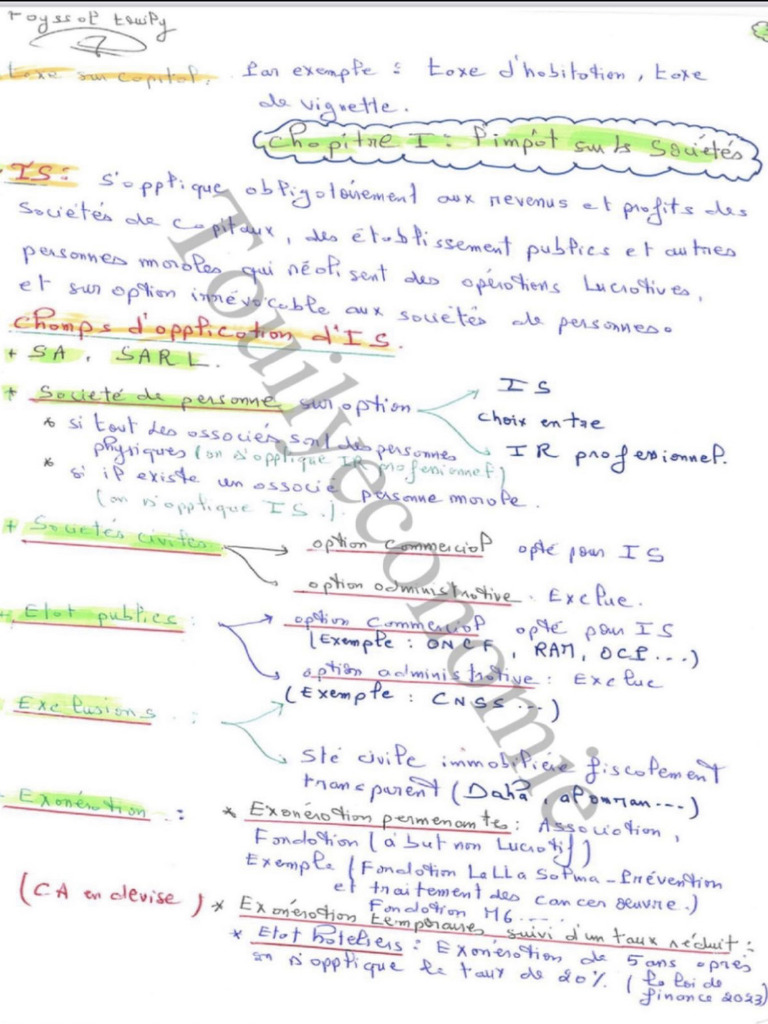 Fayssal touily
taxe sur capital : Par exemple : taxe d'habitation, taxe
de vignette.
Chapitre I : l'impôt sur ls Sociétés
- IS : s'applique obligatoirement aux revenus et profits des
Sociétés de capitaux, des établissement publics et autres
personnes morales qui réalisent des opérations lucratives,
et sur option irrévocable aux sociétés de personnes.
Champs d'application d'IS.
+ SA, SARL.
+ Societé de personne sur option
IS
choix entre
IR professionnel.
* si tout des associés sont des personnes
physiques (on s'applique IR professionnel)
* si il existe un associé personne morale.
(on s'applique IS.)
+ Sociétés civiles
option commercial opté pour IS
option administrative. Exclue.
+ Etat publics :
option commercial opté pour IS
(Exemple : ONCF, RAM, OCP...)
option administrative : Exclue
(Exemple : CNSS...)
Exclusions :
Sté civile immobilière fiscalement
transparent (Daha, alomran...)
- Exonération :
* Exonération permenantes : Association,
Fondation (à but non lucratif)
Exemple (Fondation Lalla Salma - Prévention
et traitement des cancer œuvre.)
Fondation M6....
(CA en devise)
* Exonération temporaires suivi d'un taux réduit :
* Etat hoteliers : Exonération de 5 ans après
on s'applique le taux de 20% (la loi de
finance 2023)
Touilyeconomie